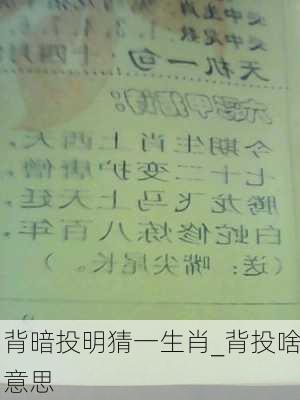 天机一句
今期生肖上西天，
七十二变护唐僧，
腾龙飞马上天廷，
白蛇修炼八百年，
（送：嘴尖尾长。）
背暗投明猜一生肖_背投啥
意思